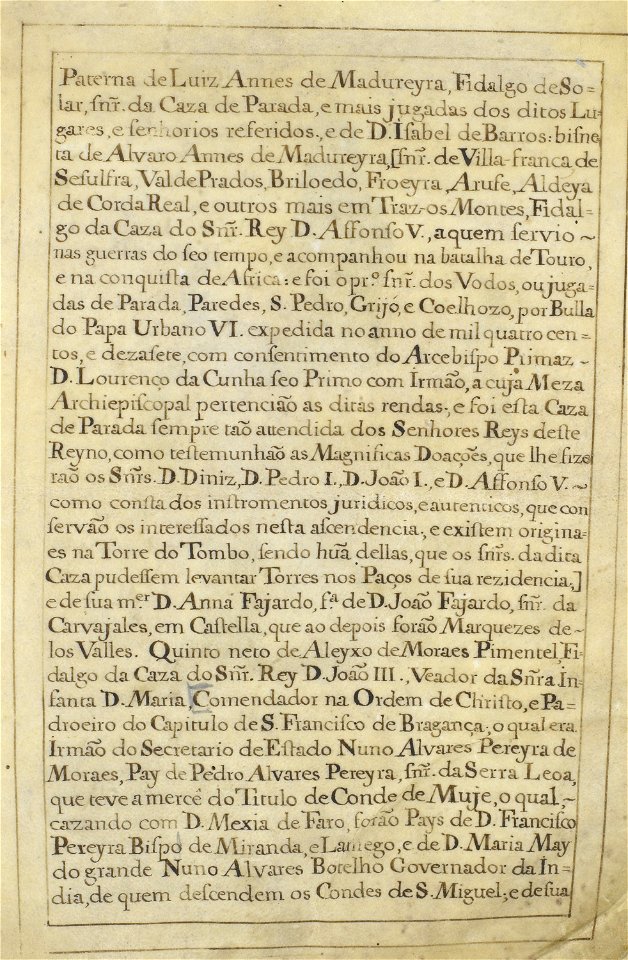 Paterna de Luiz Annes de Madureyra, Fidalgo de So=
lar, snr̃. da Caza de Parada, e mais jugadas dos ditos Lu=
gares, e senhorios referidos., e de D. Isabel de Barros: bisne=
ta de Alvaro Annes de Madureyra,[snr̃. de Villa-franca de
Sesulfra, Val de Prados, Briloedo, Froeyra, Arufe, Aldeya
de Corda Real, e outros mais em Traz-os Montes, Fidal=
go da Caza do Snr̃. Rey D. Affonso V., a quem servio ~
nas guerras do seo tempo, e acompanhou na batalha de Touro,
e na conquista de Africa: e foi o pr.º snr̃. dos Vodos, ou juga=
das de Parada, Paredes, S. Pedro, Grijó, e Coelhozo, por Bulla
do Papa Urbano VI. expedida no anno de mil quatro cen=
tos, e dezasete, com consentimento do Arcebispo Primaz ~
D. Lourenço da Cunha seo Primo com Irmão, a cuja Meza
Archiepiscopal pertencião as ditas rendas., e foi esta Caza
de Parada sempre tão attendida dos Senhores Reys deste
Reyno, como testemunhão as Magnificas Doações, que lhe fize
rão os Snr̃s. D. Diniz, D. Pedro I., D. João I., e D. Affonso V. ~
como consta dos instromentos juridicos, e autenticos, que con
servão os interessados nesta ascendencia., e existem origina=
es na Torre do Tombo, sendo hũa dellas, que os snr̃s. da dita
Caza pudessem levantar Torres nos Paços de sua rezidencia.]
e de sua m.er D. Anna Fajardo, f.ª de D. João Fajardo, snr̃. da
Carvajales, em Castella, que ao depois forão Marquezes de=
los Valles. Quinto neto de Aleyxo de Moraes Pimentel, Fi=
dalgo da Caza do Snr̃. Rey D. João III., Veador da Snr̃a In=
fanta D. Maria, Comendador na Ordem de Christo, e Pa=
droeiro do Capitulo de S. Francisco de Bragança., o qual era
Irmão do Secretario de Estado Nuno Alvares Pereyra de
Moraes, Pay de Pedro Alvares Pereyra, snr̃. da Serra Leoa,
que teve a mercê do Titulo de Conde de Muje, o qual, ~
cazando com D. Mexia de Faro, forão Pays de D. Francisco
Pereyra Bispo de Miranda, e Lamego, e de D. Maria May
do grande Nuno Alvares Botelho Governador da In=
dia, de quem descendem os Condes de S. Miguel., e de sua